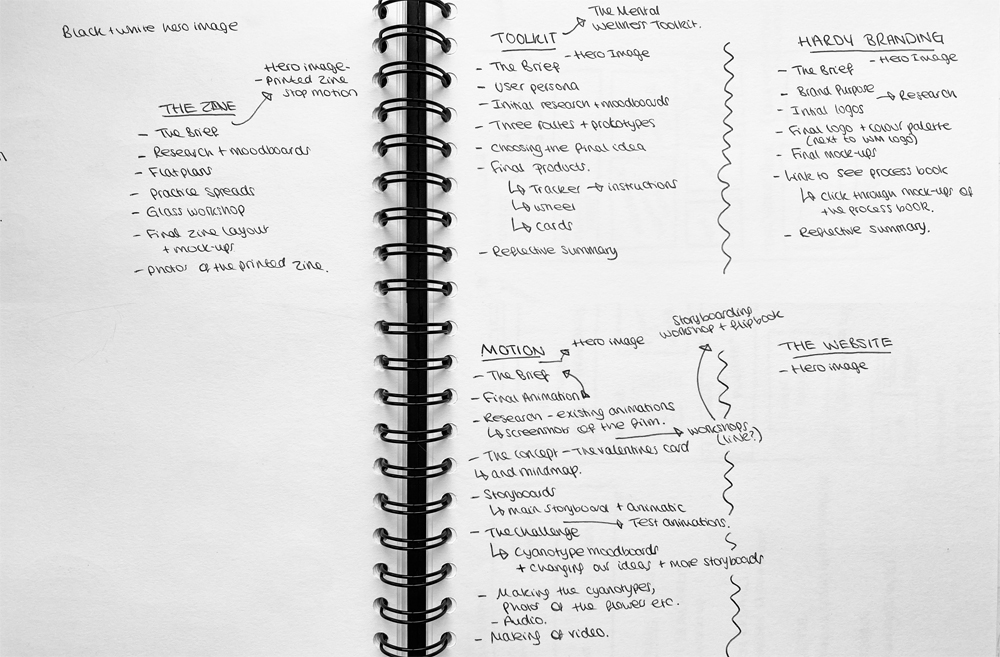 Black + white hero image
Hero image -
- Printed zine
stop motion
THE ZINE
- The Brief
- Research + moodboards
- Flatplans
- Practice spreads
- Glass workshop
- Final zine layout
+ mock-ups
- photos of the printed zine.
The Mental
Wellness Toolkit.
TOOLKIT
- Hero Image
- The Brief
- User persona
- Initial research + moodboards
- Three routes + prototypes
- choosing the final idea
- Final products.
↳ Tracker → instructions
↳ wheel
↳ cards
- Reflective summary
HARDY BRANDING
- Hero Image
- The Brief
- Brand Purpose → Research
- Initial logos
- Final logo + colour palette
(next to WM logo)
- Final mock-ups
- Link to see process book
↳ click through mock-ups of
the process book.
- Reflective summary.
Storyboarding
workshop + flipbook
MOTION
Hero image
- The Brief
- Final Animation
- Research - existing animations
↳ screenshots of the film.
→ workshops
(line?)
- The concept - The valentines card
↳ and mindmap.
- Storyboards
↳ main storyboard + animatic
→ Test animations.
- The challenge
↳ cyanotype moodboards
+ changing our ideas + more storyboards
- Making the cyanotypes,
photos of the flowers etc.
- Audio.
- Making of video.
THE WEBSITE
- Hero image